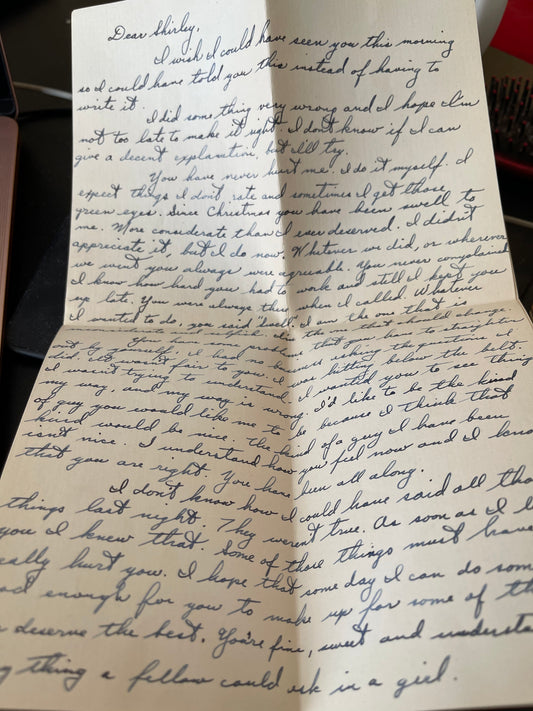 Dear Shirley,
I wish I could have seen you this morning
so I could have told you this instead of having to
write it.
I did some thing very wrong and I hope I'm
not too late to make it right. I don't know if I can
give a decent explanation, but I'll try.
You have never hurt me. I do it myself. I
expect things I don't rate and sometimes I get those
green eyes. Since Christmas you have been swell to
me. More considerate than I ever deserved. I didn't
appreciate it, but I do now. Whatever we did, or wherever
we went you always were agreeable. You never complained
I know how hard you had to work and still I kept you
up late. You were always there when I called. Whatever
I wanted to do, you said "swell." I am the one that is
I'm the one that should change.
You have some problems that you have to straighten
out by yourself, I had no business asking the questions I
did. It wasn't fair to you. I was hitting below the belt.
I wasn't trying to understand. I wanted you to see thing
my way, and my way is wrong. I'd like to be the kind
of guy you would like me to be because I think that
kind would be nice. The kind of a guy I have been
isn't nice. I understand how you feel now and I know
that you are right. You have been all along.
I don't know how I could have said all tho
things last night. They weren't true. As soon as I l
you I knew that. Some of those things must have
eally hurt you. I hope that some day I can do som
enough for you to make up for some of th
deserve the best. You're fine, sweet and understa
thing a fellow could ask in a girl.